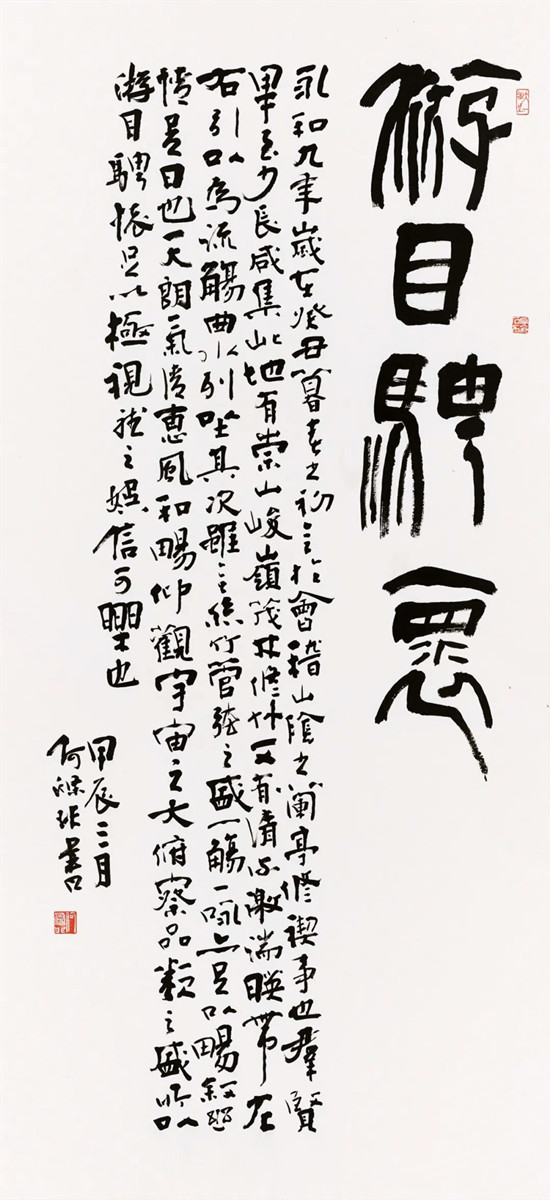 游目騁褱
永和九年歲在癸丑暮春之初會於會稽山陰之蘭亭修禊事也羣賢
畢至少長咸集此地有崇山峻嶺茂林修竹又有清流激湍暎帶左
右引以為流觴曲水列坐其次雖無絲竹管弦之盛一觴一詠亦足以暢敘幽
情是日也天朗氣清惠風和暢仰觀宇宙之大俯察品類之盛所以
游目騁懷足以極視聽之娛信可樂也
甲辰三月
何書